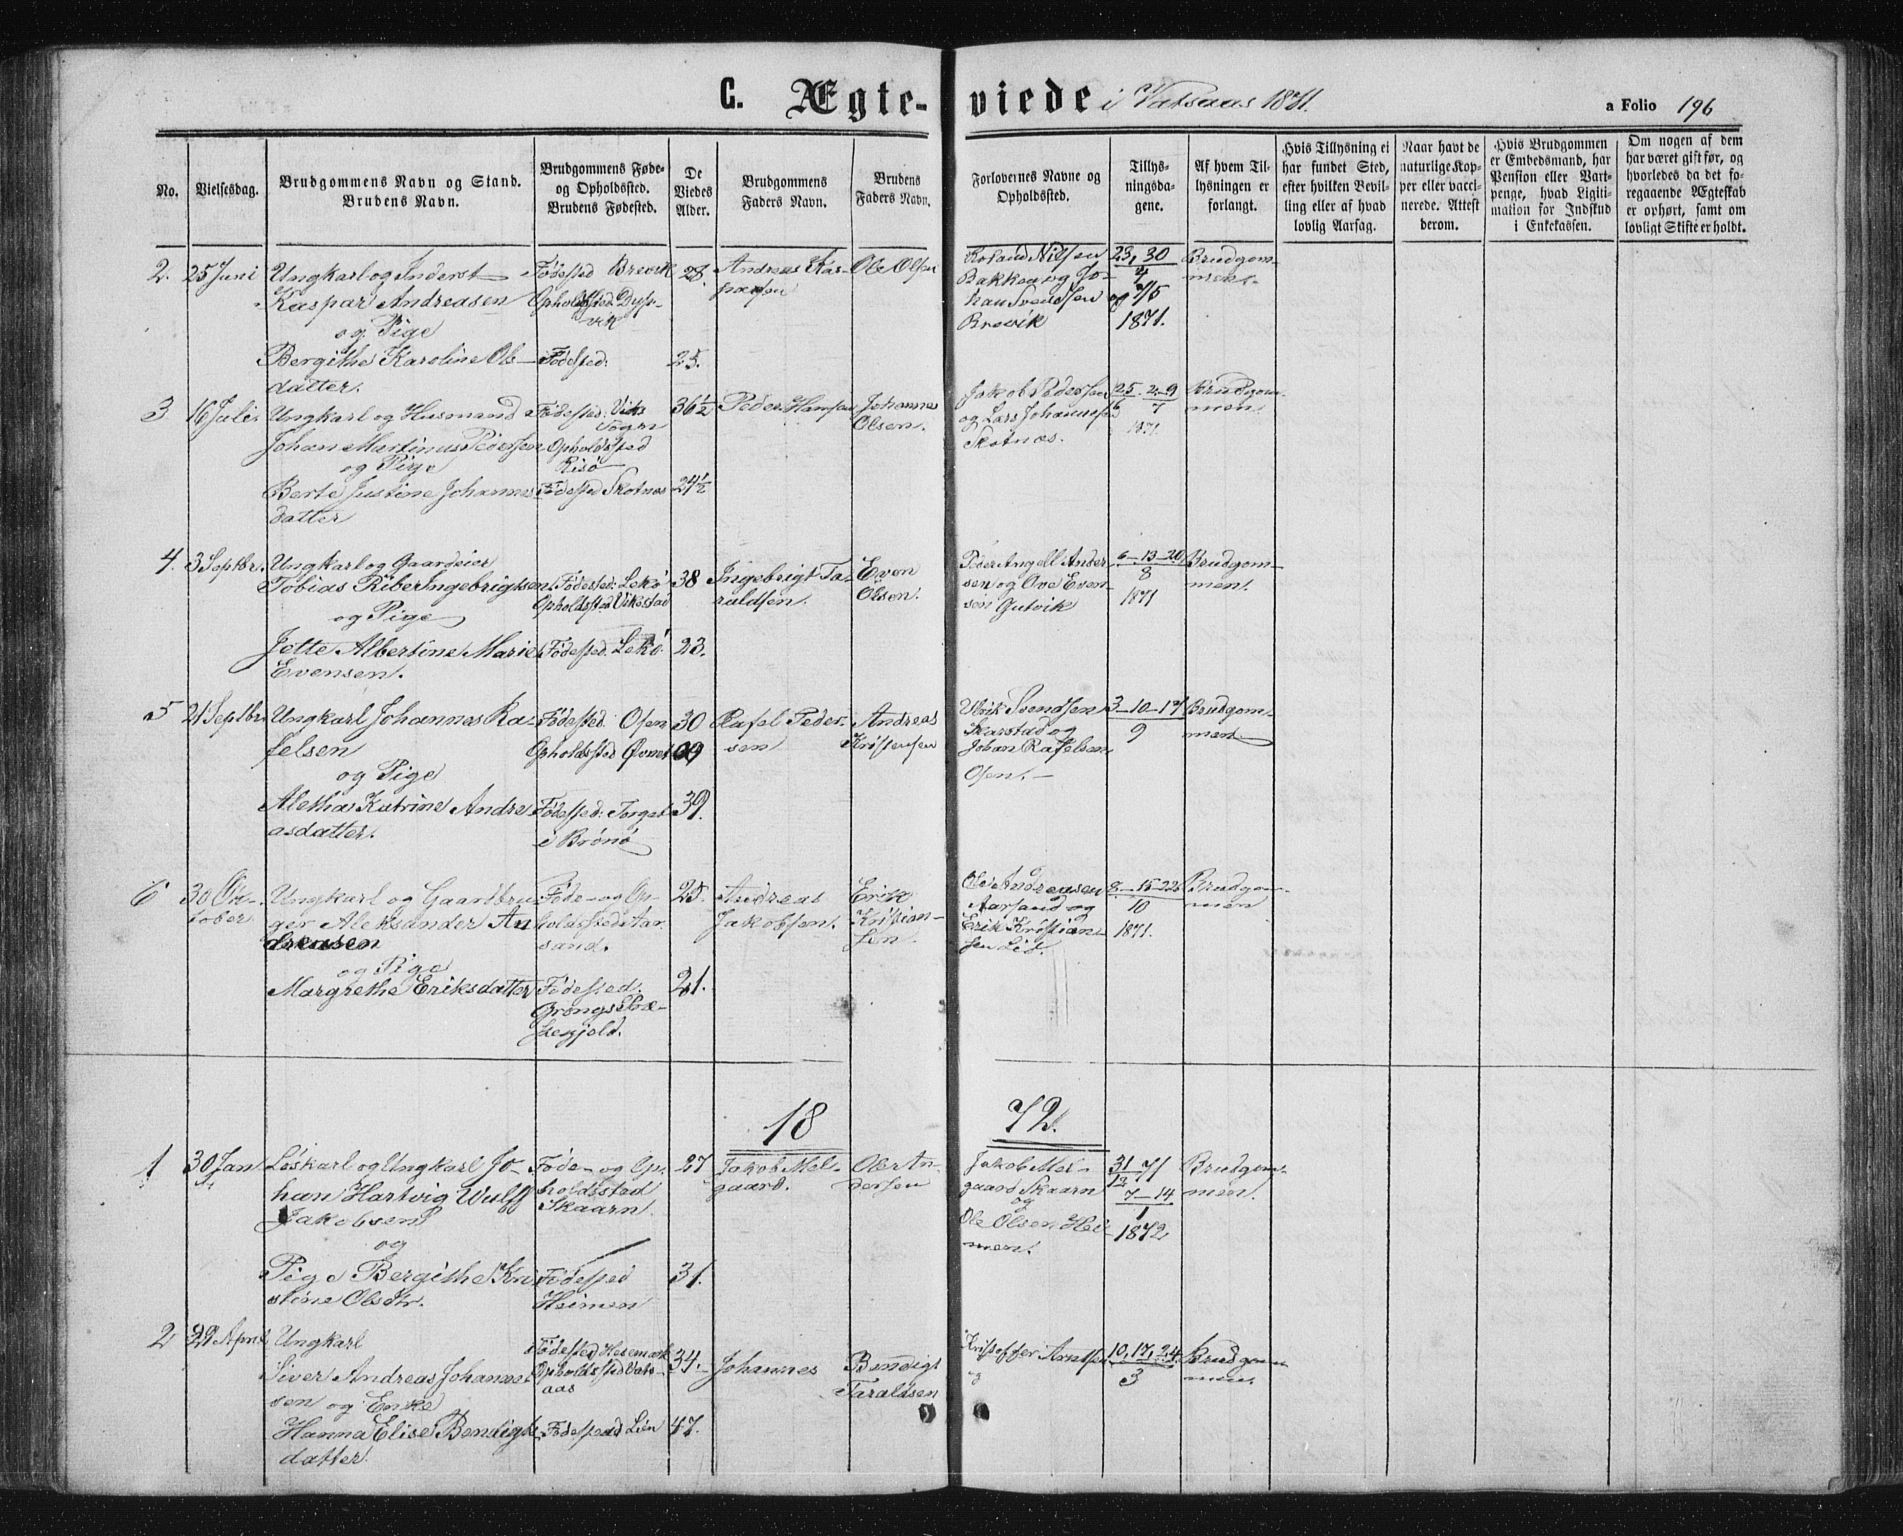 C. Ægte-viede i Vatsaas 1871. a Folio 196
No.
Vielsesdag.
Brudgommens Navn og Stand.
Brudens Navn.
Brudgommens Føde-
og Opholdssted.
Brudens Fødested.
De
Viedes
Alder.
Brudgommens
Faders Navn.
Brudens
Faders Navn.
Forlovernes Navne og
Opholdssted.
Tillys-
ningsda-
gene.
Af hvem Til-
lysningen er
forlangt.
Hvis Tillysning ei
har fundet Sted,
efter hvilken Bevil-
ling eller af hvad
lovlig Aarsag.
Naar havt de
naturlige Kop-
per eller vacci-
nerede. Attest
derom.
Hvis Brudgommen
er Embedsmand, har
Pension eller Vart-
penge, hvad Ligiti-
mation for Indskud
i Enkekassen.
Om nogen af dem
har været gift før, og
hvorledes da det fo-
regaaende Ægteskab
er ophørt, samt om
lovligt Skifte er holdt.
2. 25 Juni
Ungkarl og Inderst
Kaspar Andreasen
og Pige
Bergithe Karoline Ols-
datter.
Fødested Brevik
Opholdssted Dys-
vik
Fødested:
28.
25.
Andreas Kas-
parsen
Ole Olsen
Roland Nilsen
Bakken og Jo-
han Svendsen
Brevik
23, 30
4
og 7/5
1871.
Brudgom-
men.
3 16 Juli.
Ungkarl og Husmand
Johan Martinus Pedersen
og Pige
Berte Justine Johannes
datter
Fødested: Vik
Sogn
Opholdssted
Risø
Fødested Skotnes
36½
24½
Peder Hansen
Johannes
Olsen.
Jakob Pedersen
og Lars Johannesen
Skotnes.
25. 2-9
6 7
1871.
Brudgom-
men.
4. 3 Septbr.
Ungkarl og Gaardeier
Tobias Riber Ingebrigtsen
og Pige
Jette Albertine Marie
Evensen.
Fødested: Lekø
Opholdssted Vikestad
Fødested: Lekø
38
23.
Ingebrigt Ta-
raldsen.
Even
Olsen.
Peder Angell Ander-
sen og Ove Even-
sen Gutvik
6-13-20
8
1871
Brudgom-
men.
5 21 Septbr
Ungkarl Johannes Ra-
felsen
og Pige
Aletha Katrine Andre-
asdatter.
Fødested: Osen
Opholdssted
Fødested: Torget
i Brønø
30
39.
Rafel Peder-
sen
Andreas
Kristensen
Ulrik Svendsen
Skarstad og
Johan Rafelsen
Osen.
3-10-17
9
Brudgom-
men
6 30 Ok-
tober
Ungkarl og Gaardbru
ger Aleksander An
dreasen
og Pige
Margrethe Eriksdatter
Føde- og Op-
holdssted Aar-
sand.
Fødested.
Grongs Præ-
stegjeld.
25.
21.
Andreas
Jakobsen.
Erik
Kristian-
sen.
Ole Andreasen
Aarsand og
Erik Kristian-
sen Lid.
8-15-22
10
1871.
Brudgom-
men
18 72.
1 30 Jan
Løskarl og Ungkarl Jo-
han Hartvig Wulff
Jakobsen
og
Pige Bergithe Kri
stine Olsdtr.
Føde- og Op-
holdssted
Skaarn.
Fødested
Heimen
27
31.
Jakob Mel-
gaard.
Ole An-
dersen
Jakob Mel-
gaard Skaarn
og
Ole Olsen Hei-
men.
31/12 71
7-14
1
1872
Brudgom-
men.
2 29 April
Ungkarl
Siver Andreas Johannes-
sen og Enke
Hanna Elise Bendigts
datter.
Fødested Hesemark
Opholdssted Vats-
aas
Fødested Lien
34.
47.
Johannes
Bendigt
Taraldsen
Kristoffer Arntsen
og
10, 17, 24
3
Brudgom-
men.